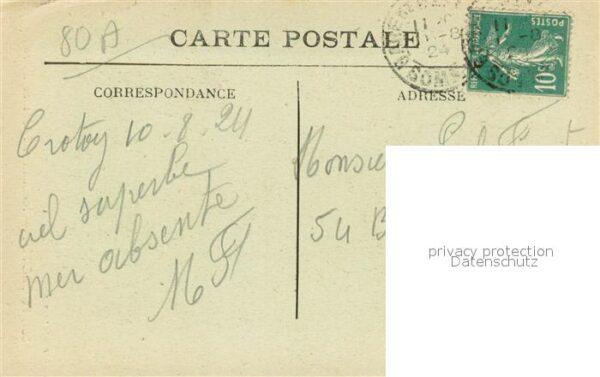 80 A
CARTE POSTALE
CORRESPONDANCE
ADRESSE
POSTES
10c
11
24
SOMME
Crotoy 10.8.24
ciel superbe
mer absente
Monsieur
54 B
privacy protection
Datenschutz